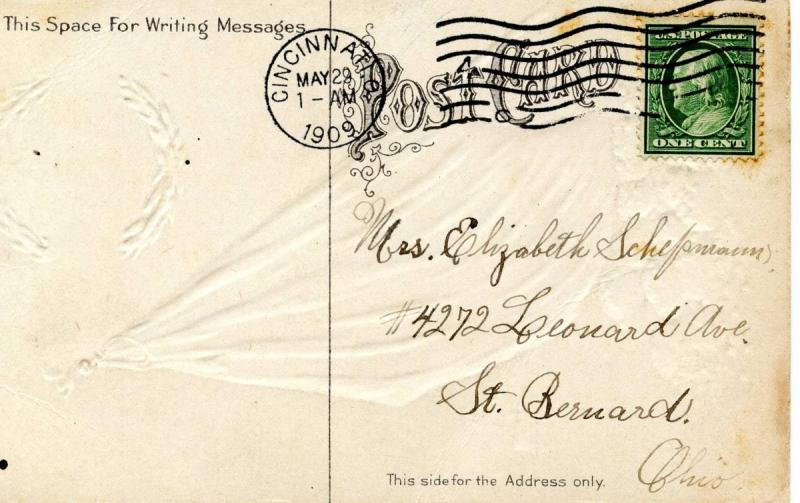 This Space For Writing Messages
Post Card
CINCINNATI, O.
MAY 29
1-AM
1909
U.S. POSTAGE
ONE CENT
Mrs. Elizabeth
#4272 Leonard Ave.
St. Bernard.
Ohio
This side for the Address only.